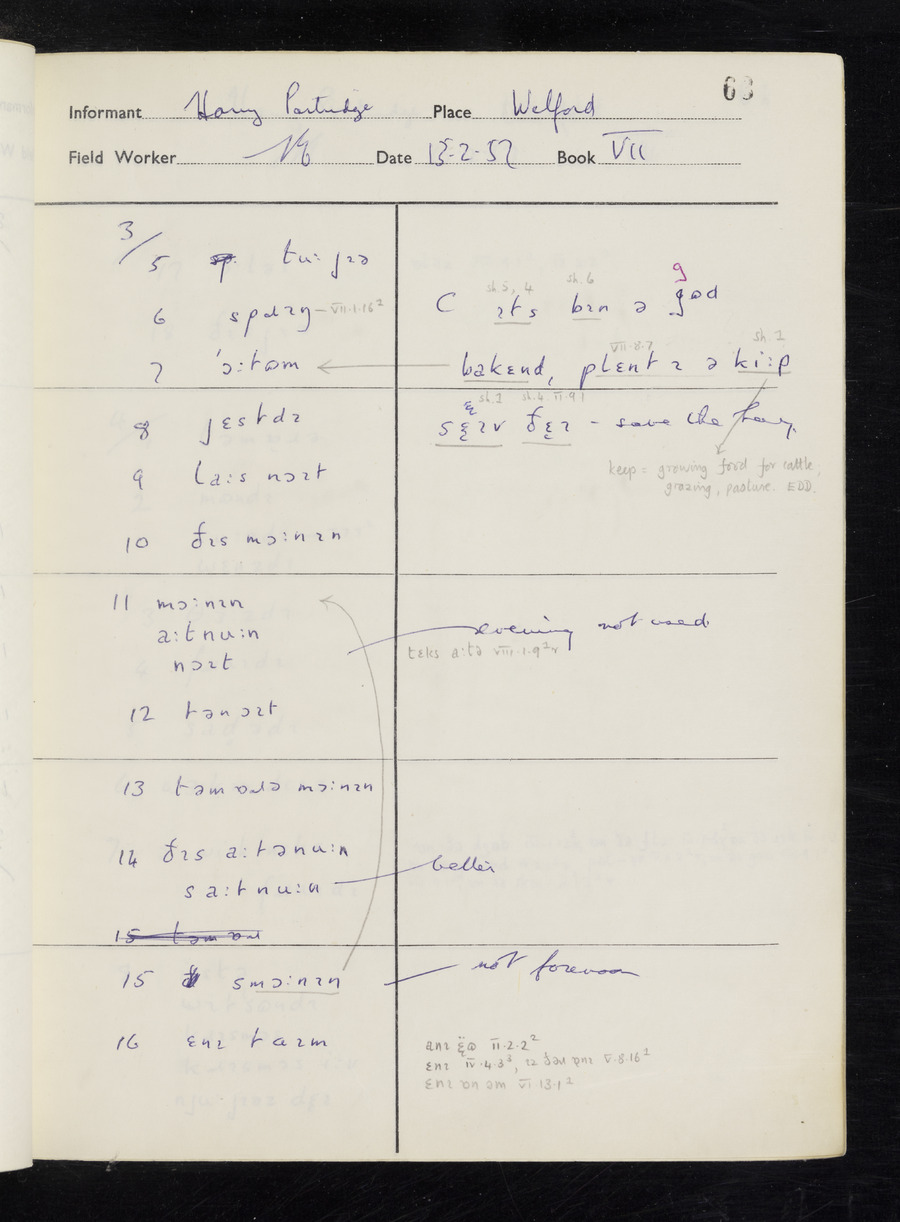 63
Informant Harry Partridge Place Welford
Field Worker Date 13-2-57 Book VII
3/
5 tu: jɪə
6 spɹɪŋ – VII·1·16²
7 ˈɔ:təm
8 jɛstdɪ
9 la:s nɔɪt
10 ðɪs mɔ:nɪn
11 mɔ:nɪn
a:tnu:n
nɔɪt
12 tənɔɪt
13 təmɒɹə mɔ:nɪn
14 ðɪs a:tənu:n
sa:tnu:n
15 təmɒɹ
15 smɔ:nɪn
16 ɛnɪ taɪm
sh.5, 4 sh.6 g
C ɪts bɪn ə gʊd
VII·8·7 sh. 2
bakɛnd, plɛntɪ ə ki:p
sh.2 sh.4 II·9·1
sɛɪv ðɛɪ – save the hay.
keep = growing food for cattle,
grazing, pasture. EDD.
evening not used
tɛks a:tə VIII·1·9² v
better
not forenoon
II·2·2²
ɛnɪ IV·4·3³, V·8·16²
ɛnɪ ɒn əm VI 13·1²